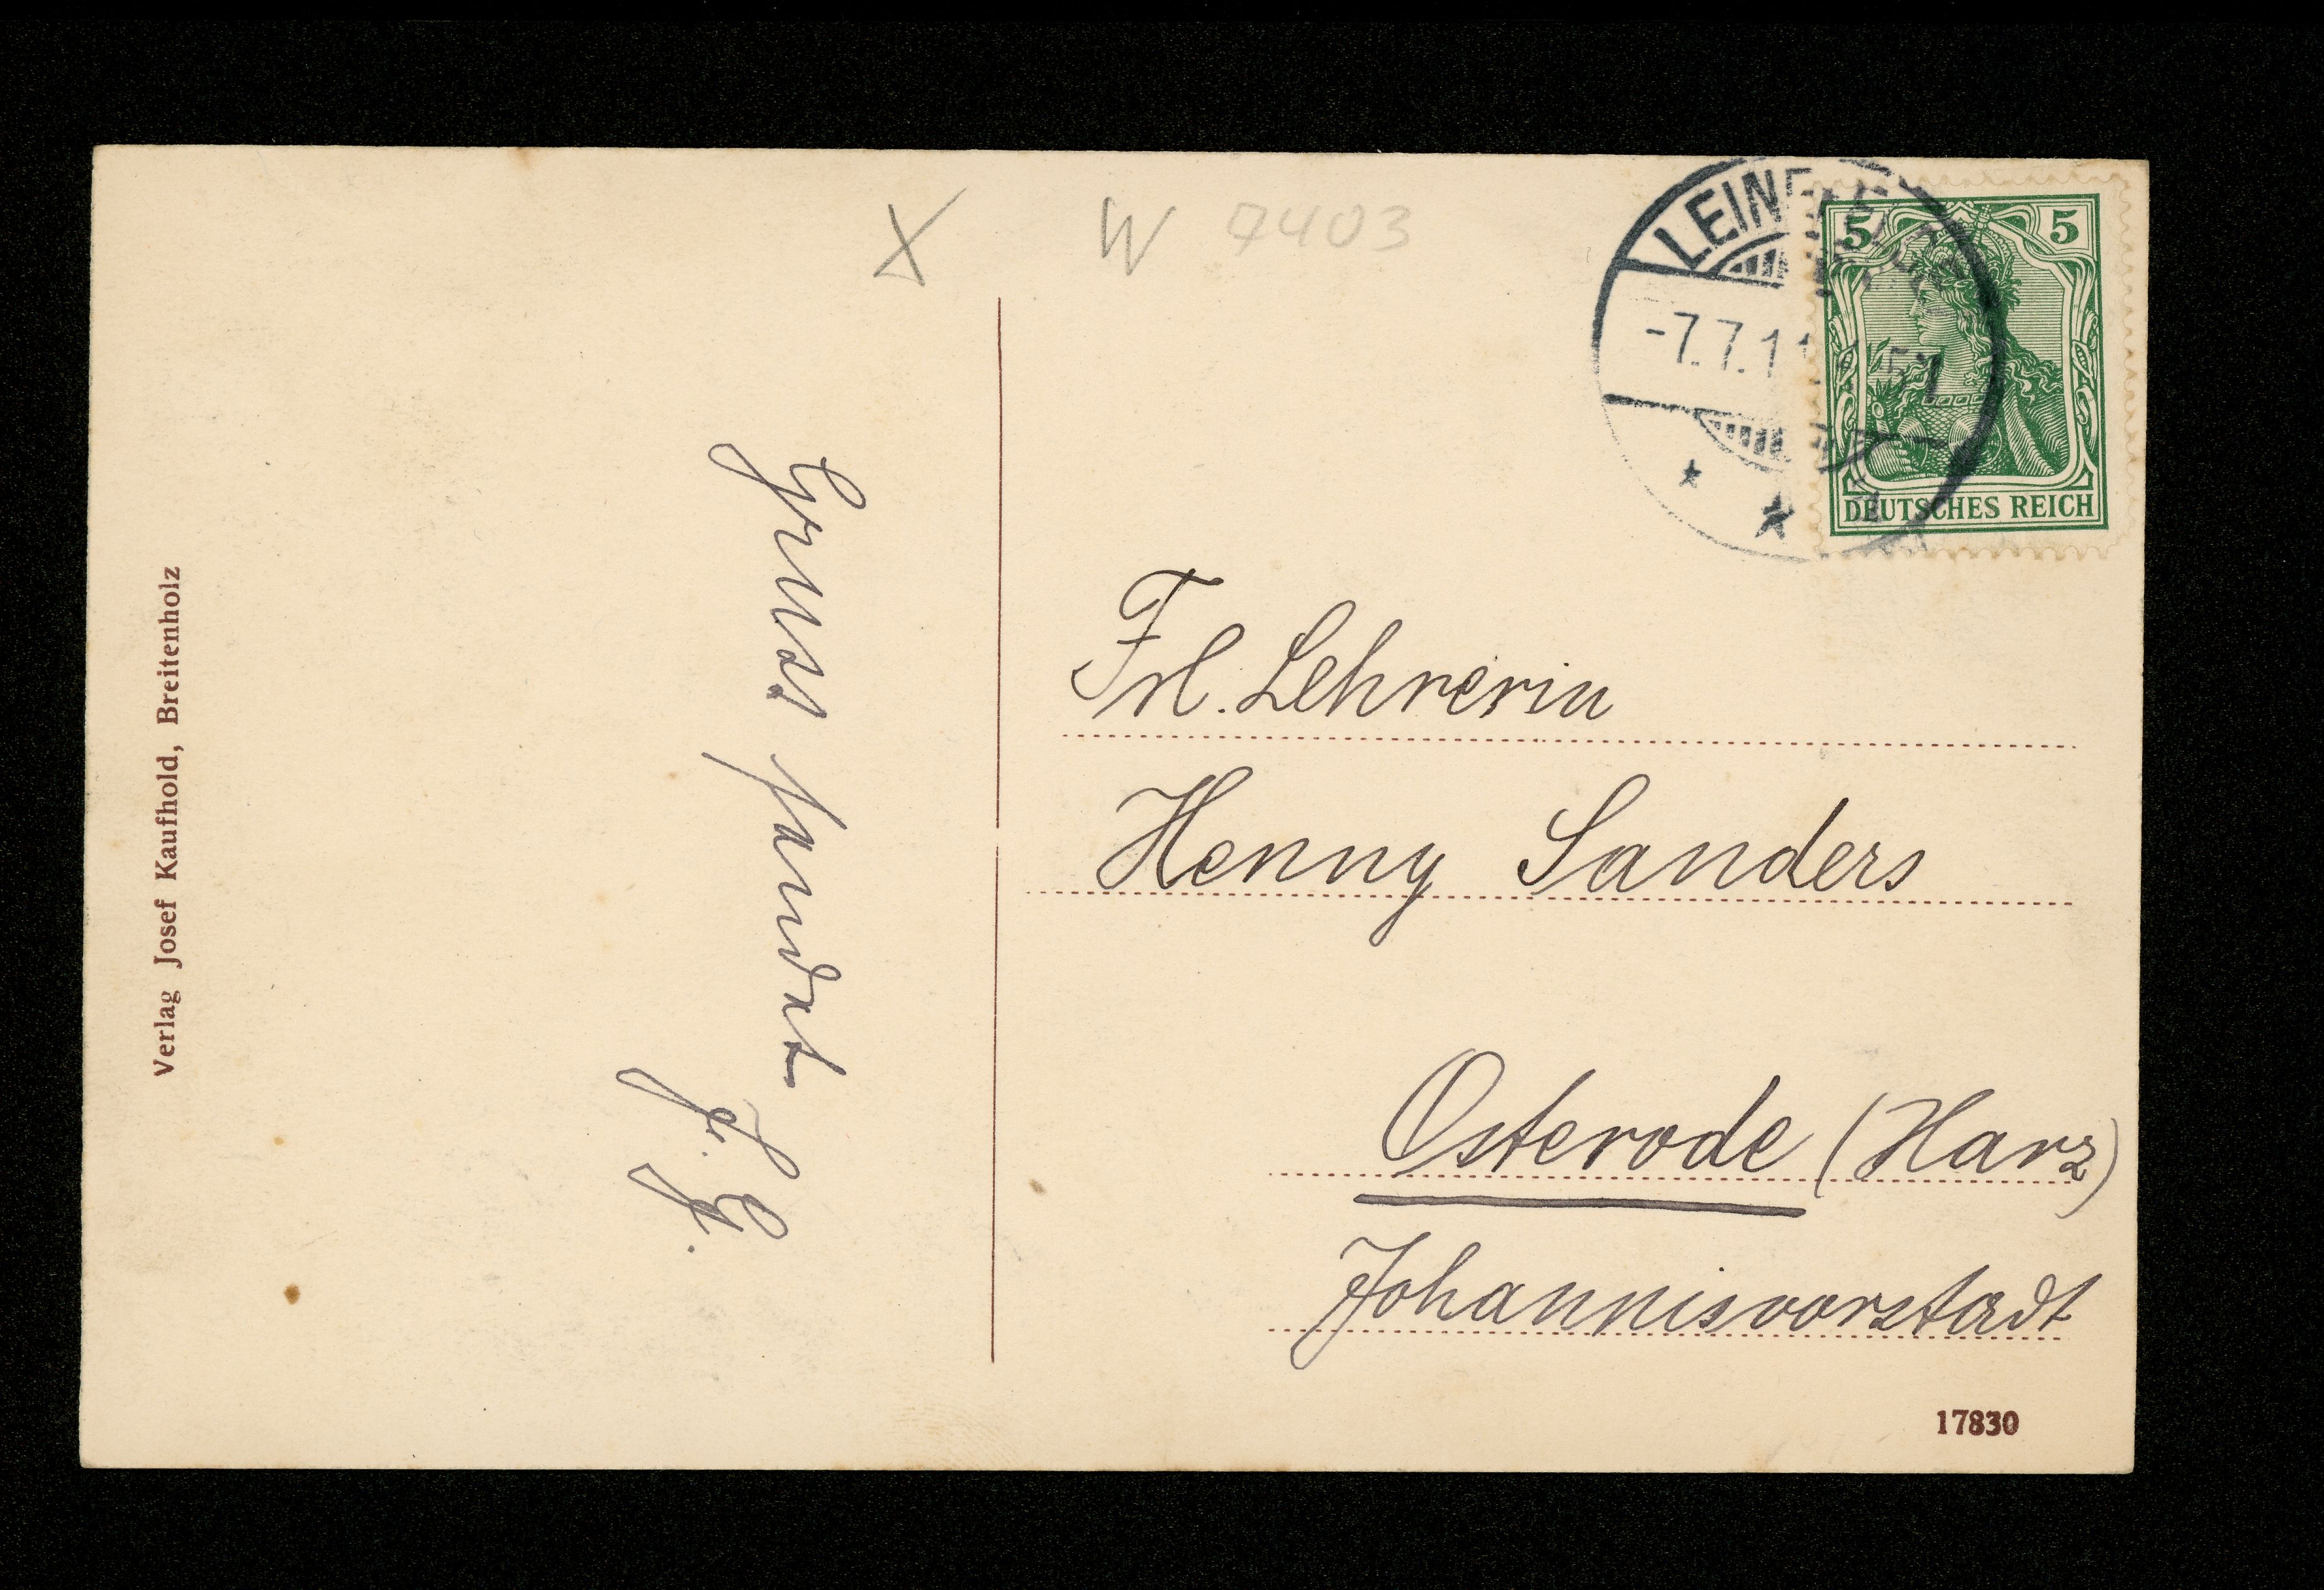 X W 7403
5 5
DEUTSCHES REICH
-7.7.11
Frl. Lehrerin
Henny Sanders
Osterode (Harz)
Johannisvorstadt
17830
Gruss sendet
Verlag Josef Kaufhold, Breitenholz